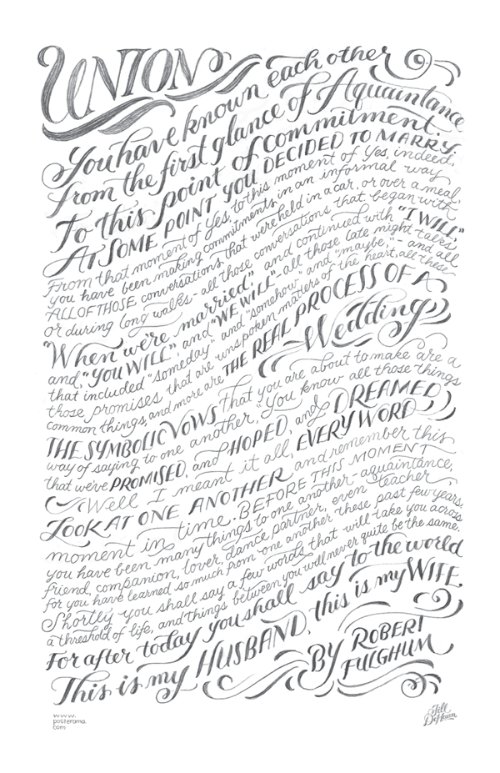 UNION
You have known each other
from the first glance of Aquaintance
To this point of commitment.
AT SOME POINT YOU DECIDED TO MARRY.
From that moment of Yes, to this moment of Yes, indeed,
you have been making commitments in an informal way.
ALL OF THOSE conversations that were held in a car, or over a meal,
or during long walks - all those conversations that began with
"When we're married," and continued with "I WILL"
and, "YOU WILL", and "WE WILL" - all those late night talks
that included "someday" and "somehow" and "maybe," - and all
those promises that are unspoken matters of the heart, all these
common things, and more are THE REAL PROCESS OF A
Wedding
THE SYMBOLIC VOWS that you are about to make are a
way of saying to one another, You know all those things
that we've PROMISED, and HOPED, and DREAMED
Well I meant it all, EVERY WORD
LOOK AT ONE ANOTHER and remember this
moment in time. BEFORE THIS MOMENT
you have been many things to one another - aquaintance,
friend, companion, lover, dance partner, even teacher
for you have learned so much from one another these past few years.
Shortly you shall say a few words that will take you across
a threshold of life, and things between you will never quite be the same.
For after today you shall say to the world
This is my HUSBAND, this is my WIFE.
BY ROBERT
FULGHUM
www.
posterama.
com
Jill
DeHaan